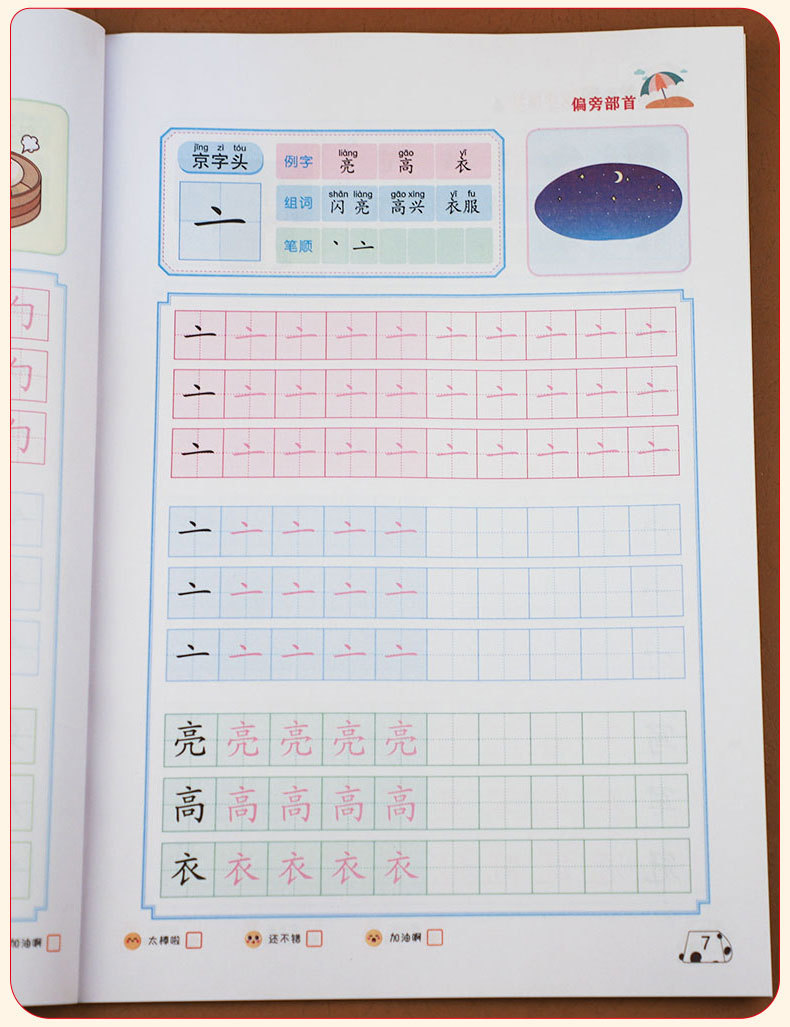 偏旁部首
jīng zì tóu
京字头
亠
例字
liàng gāo yī
亮 高 衣
组词
shǎn liàng gāo xìng yī fu
闪亮 高兴 衣服
笔顺
丶 亠
亠 亠 亠 亠 亠 亠 亠 亠 亠 亠
亠 亠 亠 亠 亠 亠 亠 亠 亠 亠
亠 亠 亠 亠 亠 亠 亠 亠 亠 亠
亠 亠 亠 亠 亠
亠 亠 亠 亠 亠
亠 亠 亠 亠 亠
亮 亮 亮 亮 亮
高 高 高 高 高
衣 衣 衣 衣 衣
勺
勺
勺
加油啊
太棒啦 还不错 加油啊
7